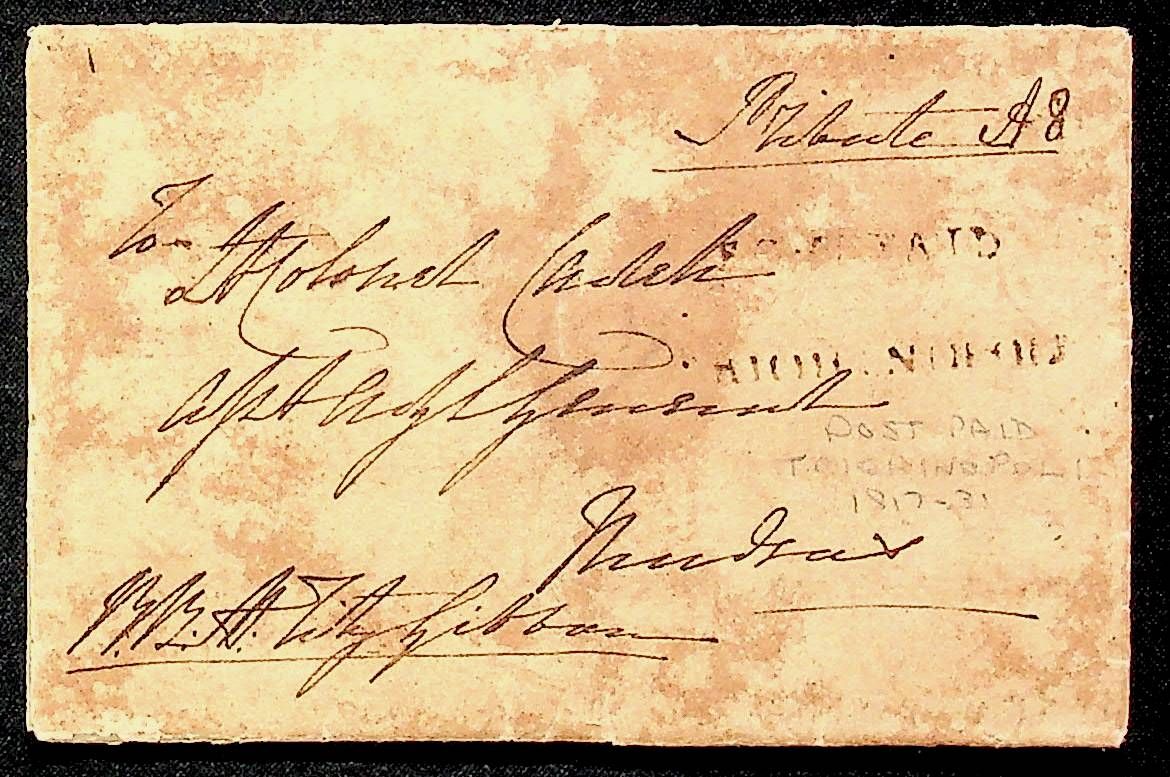 A 8
To
Lt Colonel Cadell
POST PAID
Asst Adjt General
POST PAID
TRICHINOPOLI
1817-31
Madras
H. FitzGibbon